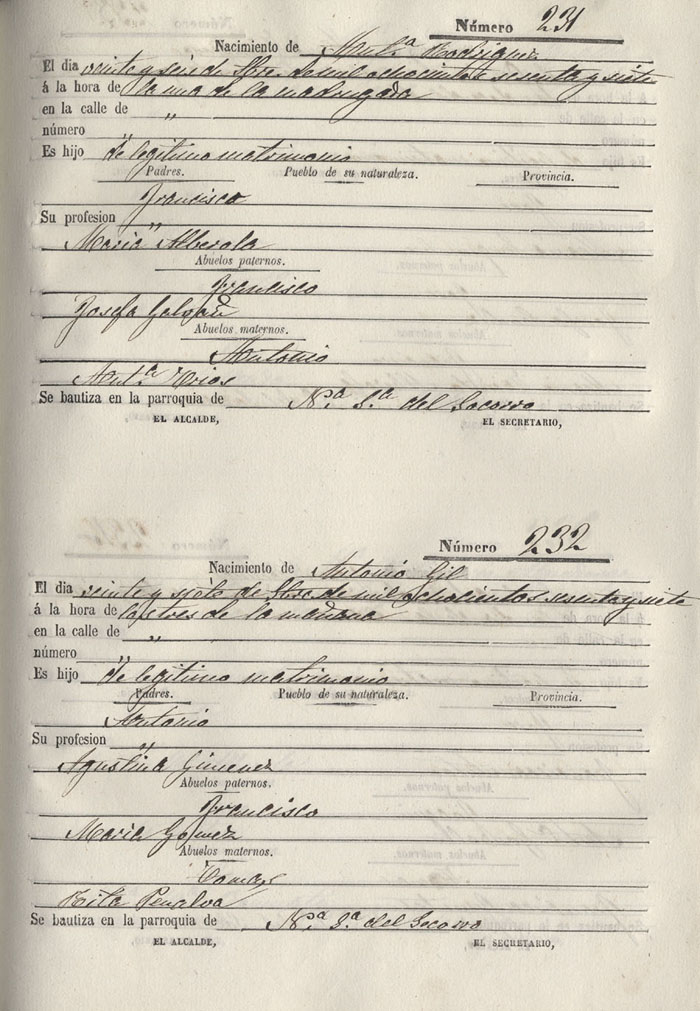 Número 231
Nacimiento de Ant.ª Rodriguez
El dia veinte y seis de Sbre. de mil ochocientos sesenta y siete
á la hora de la una de la madrugada
en la calle de "
número "
Es hijo de legitimo matrimonio
Padres. Pueblo de su naturaleza. Provincia.
Francisco
Su profesion "
Maria Alberola
Abuelos paternos.
Francisco
Josefa Galvañ
Abuelos maternos.
Antonio
Ant.ª
Se bautiza en la parroquia de N.ª S.ª del Socorro
EL ALCALDE, EL SECRETARIO,
Número 232
Nacimiento de Antonio Gil
El dia veinte y siete de Sbre de mil ochocientos sesenta y siete
á la hora de las tres de la mañana
en la calle de "
número "
Es hijo de legitimo matrimonio
Padres. Pueblo de su naturaleza. Provincia.
Antonio
Su profesion "
Agustina Gimenez
Abuelos paternos.
Francisco
Maria Gomez
Abuelos maternos.
Tomas
Rita Penalva
Se bautiza en la parroquia de N.ª S.ª del Socorro
EL ALCALDE, EL SECRETARIO,